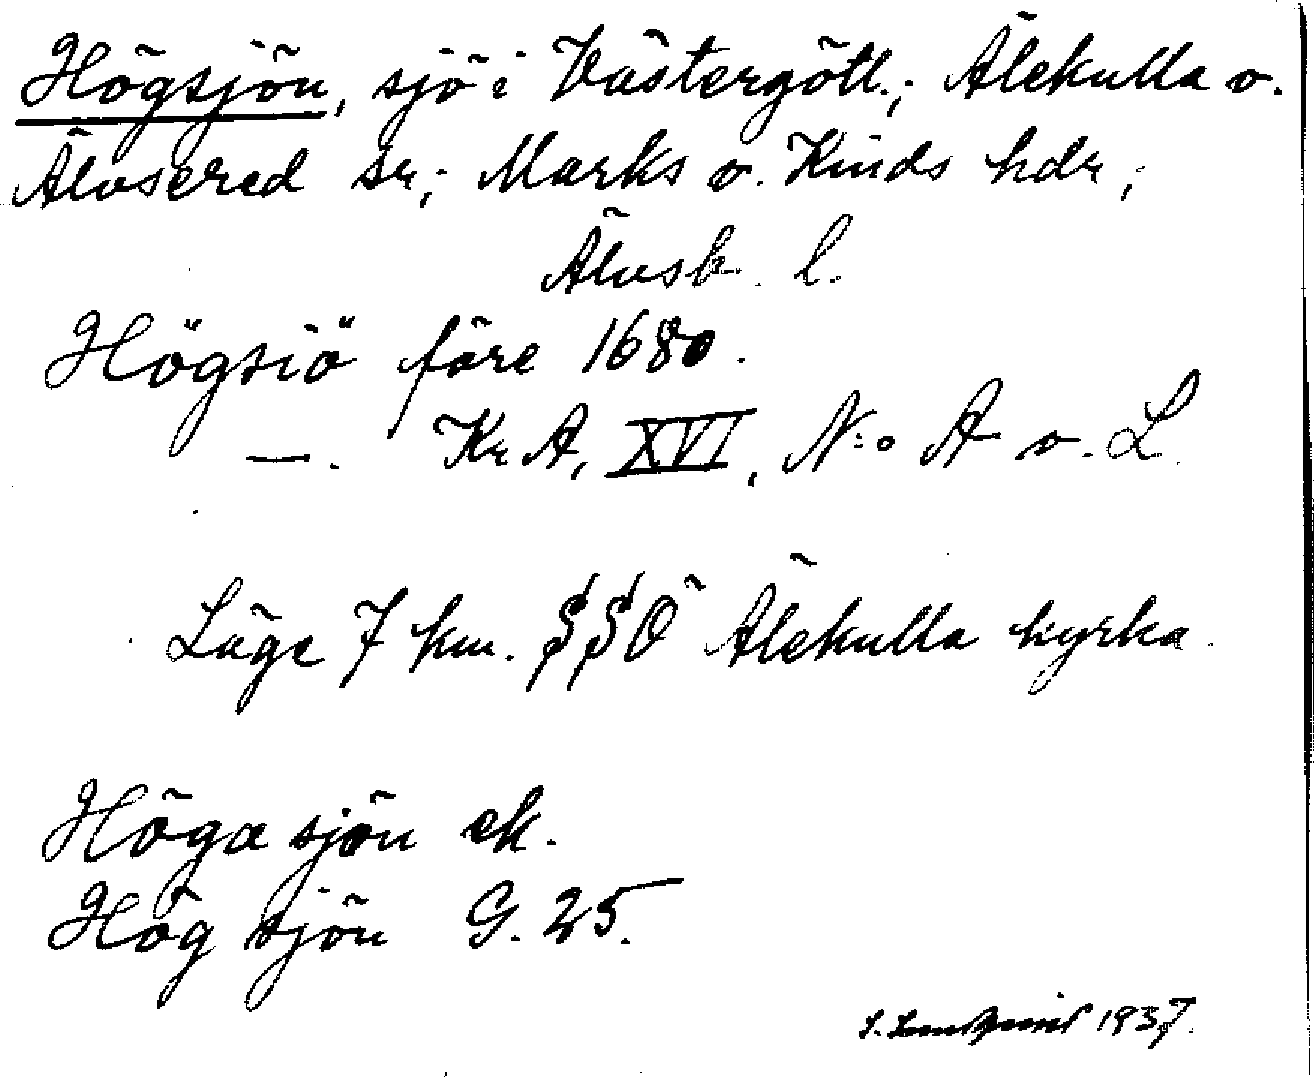 Högsjön, sjö i Västergötl.; Älekulla o.
Älvsered snr; Marks o. Kinds hdr;
Älvsb. l.
Högsiö före 1680.
—. Kr A, XVI, N:o A o. L.
Läge 7 km. SSÖ Älekulla kyrka.
Höga sjön ek.
Hög sjön G. 25.
S. Lundqvist 1937.